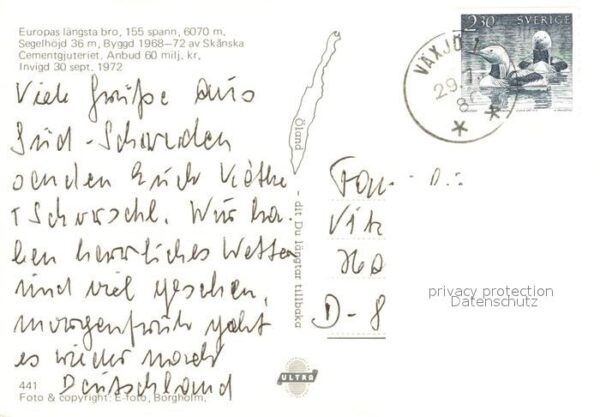 Europas längsta bro, 155 spann, 6070 m.
Segelhöjd 36 m, Byggd 1968–72 av Skånska
Cementgjuteriet. Anbud 60 milj. kr.
Invigd 30 sept. 1972
Viele Grüße aus
Süd-Schweden
senden Euch
Wir ha-
ben herrliches Wetter
und viel gesehen,
morgen früh geht
es wieder nach
Deutschland
441
Foto & copyright: E-foto, Borgholm.
Öland - dit Du längtar tillbaka
ULTRA
2.30 SVERIGE
VÄXJÖ 1
29.7.
D-8
privacy protection
Datenschutz